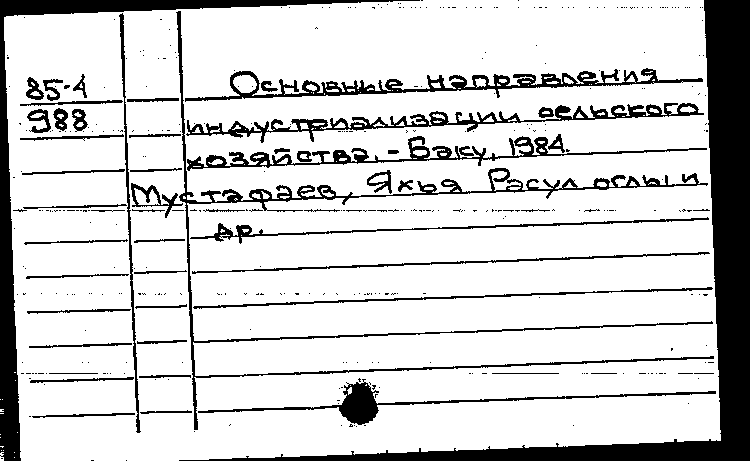 85-4 Основные направления
988 индустриализации сельского
хозяйства. - Баку, 1984.
Мустафаев, Яхья Расул оглы и
др.